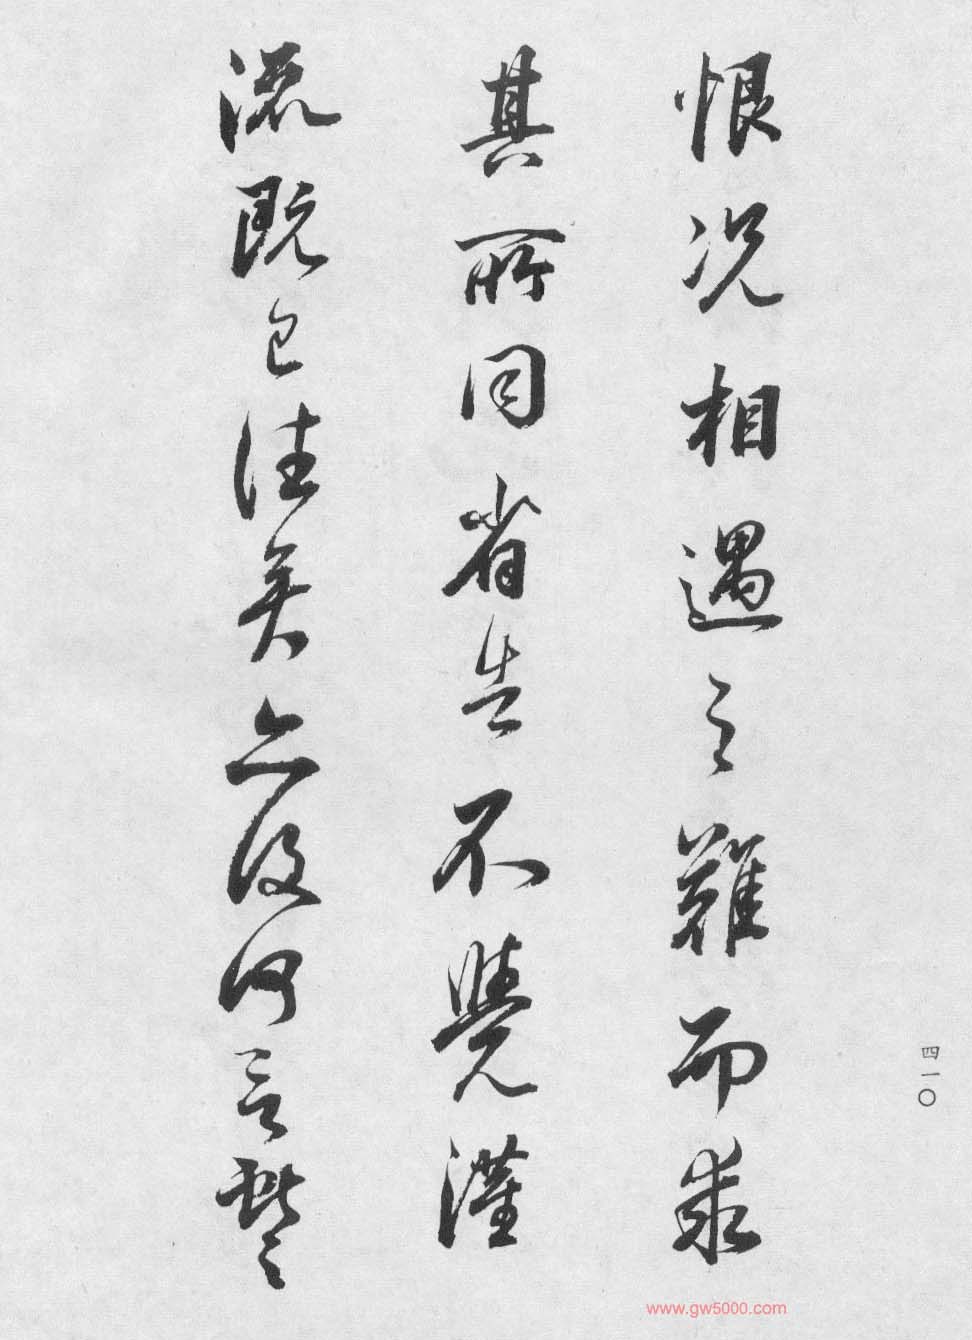 恨况相遇之難而求
其所同省告不覺
流既已往矣亦復何言
四一〇
www.gw5000.com